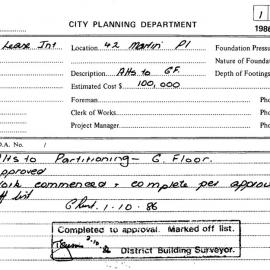 CITY PLANNING DEPARTMENT
1
1986
Lease Int Location 42 Martin Pl Foundation Pressu
Nature of Founda
Description Alts to GF. Depth of Footings
Estimated Cost $ 100,000
Foreman Pho
Clerk of Works Pho
Project Manager Pho
O.A. No. /
Alts to Partitioning - G. Floor.
approved
work commenced + complete per approv
ff list
1.10.86
Completed to approval. Marked off list.
District Building Surveyor.